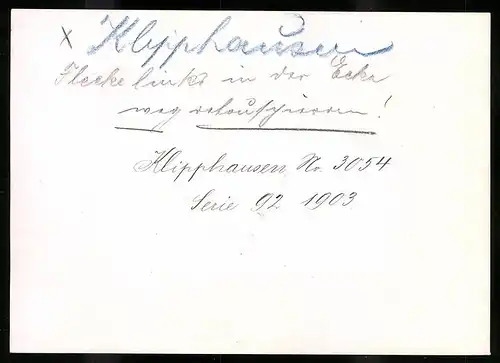 x Klipphausen
Flecke links in der Ecke
weg retouschieren!
Klipphausen No. 3054
Serie 92 1903